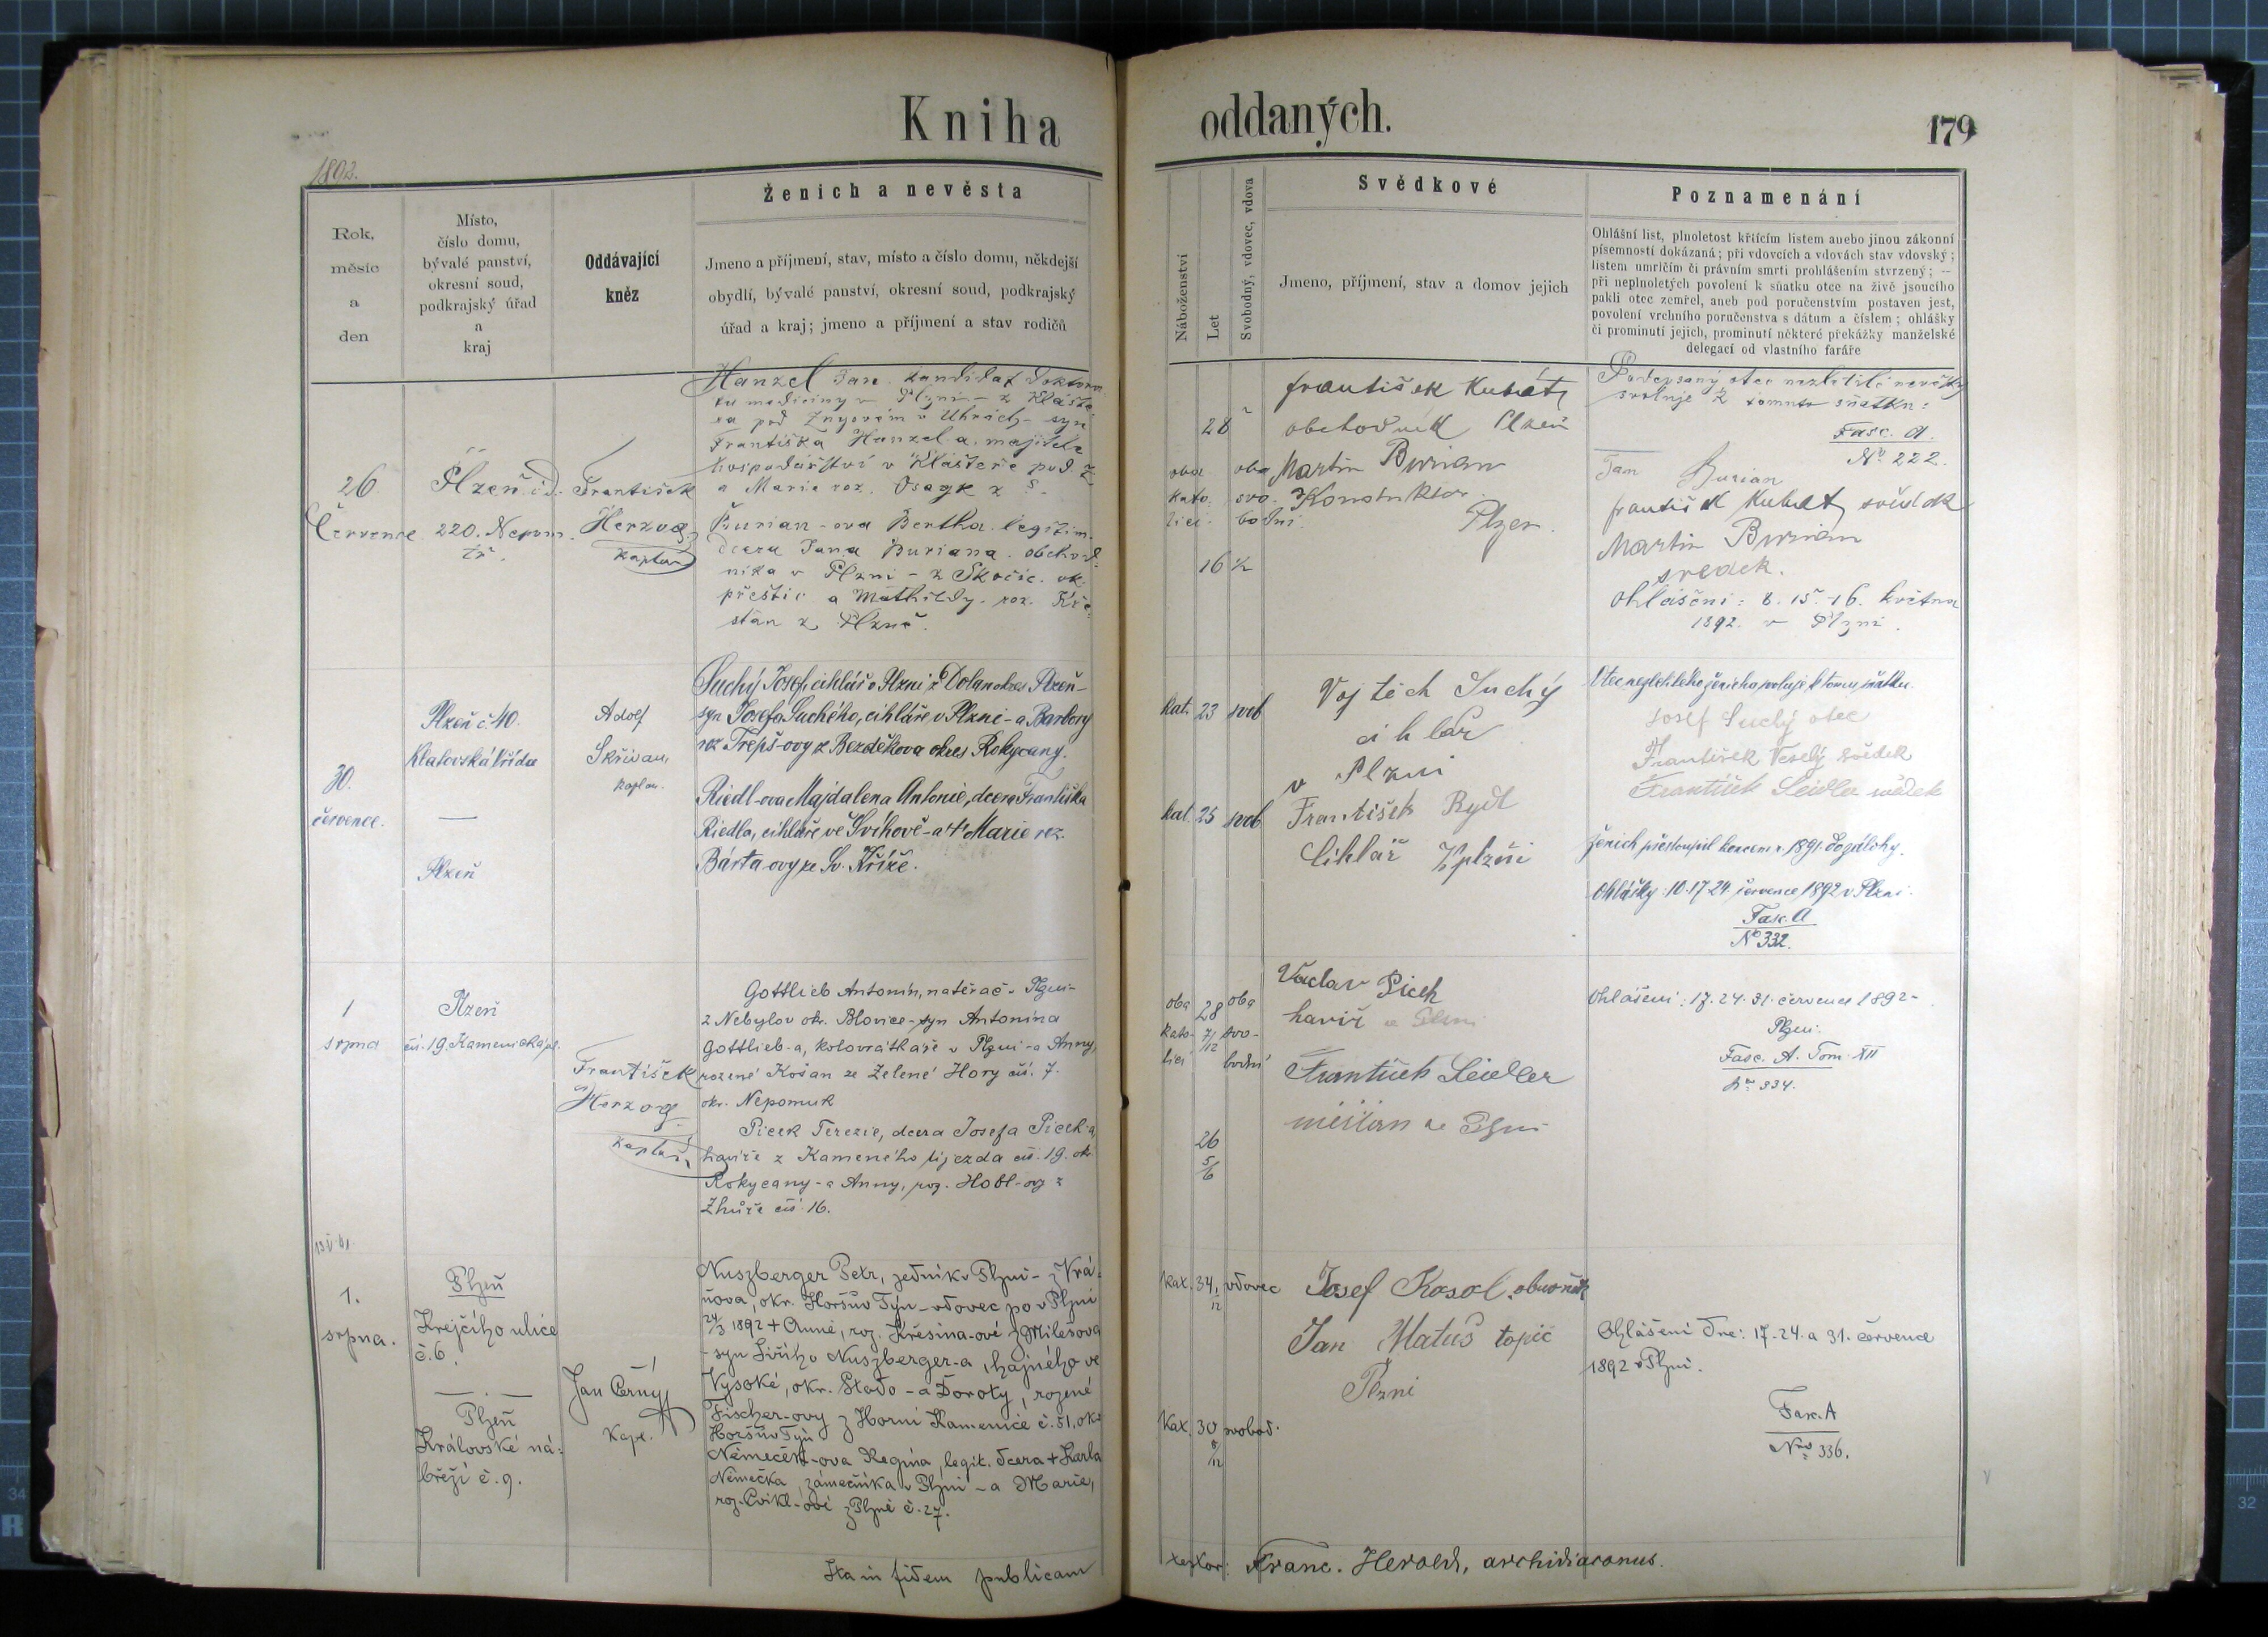 Kniha
oddaných.
179
1892.
Ženich a nevěsta
Rok,
měsíc
a
den
Místo,
číslo domu,
bývalé panství,
okresní soud,
podkrajský úřad
a
kraj
Oddávající
kněz
Jmeno a příjmení, stav, místo a číslo domu, někdejší
obydlí, bývalé panství, okresní soud, podkrajský
úřad a kraj; jmeno a příjmení a stav rodičů
Náboženství
Let
Svobodný, vdovec, vdova
Svědkové
Jmeno, příjmení, stav a domov jejich
Poznamenání
Ohlášní list, plnoletost křticím listem anebo jinou zákonní
písemností dokázaná; při vdovcích a vdovách stav vdovský;
listem umrlčím či právním smrti prohlášením stvrzený; —
při neplnoletých povolení k sňatku otce na živě jsoucího
pakli otec zemřel, aneb pod poručenstvím postaven jest,
povolení vrchního poručenstva s dátum a číslem; ohlášky
či prominutí jejich, prominutí některé překážky manželské
delegací od vlastního faráře
26
Července
Plzeň
220. Nepom.
tř.
František
Herzog,
kaplan
Hanzel Jan. kandidat doktora
tu mediciny v Plzni - z Klášte
ra pod Znyovem v Uhrách - syn
Františka Hanzel-a. majitele
hospodářství v Klášteře pod Z.
a Marie roz. Osagk z
Burian-ova Bertha. legitim.
dcera Jana Buriana. obchod-
níka v Plzni - z Skočic. ok.
přeštic a Mathildy. roz. Kře
stan z Plzně.
28
oba
kato
lici.
oba
svo.
bodni.
16 1/2
František Kubát
obchodník Plzeň
Martin Burian
Konstruktor.
Plzen.
Podepsaný otec nezletilé nevěsty
svoluje k tomuto sňatku:
Fasc. A.
No 222.
Jan Burian
František Kubát svědek
Martin Burian
svedek.
Ohlášeni: 8. 15. 16. května
1892. v Plzni.
30.
července.
Plzeň č. 40.
Klatovská třída
—
Plzeň
Adolf
Skřivan,
kaplan.
Suchý Josef, cihlář v Plzni z Dolan okres Plzeň-
syn Josefa Suchého, cihláře v Plzni - a Barbory
roz Trepš-ovy z Bezděkova okres Rokycany.
Riedl-ova Majdalena Antonie, dcera Františka
Riedla, cihláře ve Švihově - a + Marie roz.
Bárta-ovy ze Sv. Kříže.
kat. 23 svob
kat. 25 svob
Vojtěch Suchý
cihlář
v Plzni
František Rydl
Cihlář v plzni
Otec nezletilého ženicha svoluje k tomu sňatku.
Josef Suchý otec
František Veselý svědek
František Seidler svědek
Ženich přestoupil koncem r. 1891. do zálohy.
Ohlášky: 10. 17. 24. července 1892 v Plzni.
Fasc. A
No 332.
1
srpna
Plzeň
čís. 19. Kamenická ul.
František
Herzog
kaplan
Gottlieb Antonín, natěrač v Plzni-
z Nebylov okr. Blovice - syn Antonina
Gottlieb-a, kolovrátkaře v Plzni - a Anny,
rozené Košan ze Zelené Hory čís. 7.
okr. Nepomuk
Picek Terezie, dcera Josefa Picek-a,
havíře z Kamenného Újezda čís. 19. okr.
Rokycany - a Anny, roz. Hobl-ovy z
Zhůře čís. 16.
oba
kato-
lici
28
7/12
oba
svo-
bodní
26
5/6
Vaclav Picek
havíř
František Seidler
měšťan ze Plzni
Ohlášeni: 17. 24. 31. července 1892-
Plzni.
Fasc. A. Tom XII
No 334.
1.
srpna.
Plzeň
Krejčího ulice
č. 6.
Plzeň
Královské ná-
břeží č. 9.
Jan Černý,
Kapl.
Nuszberger Petr, zedník v Plzni - z Vrá-
nova, okr. Horšův Týn - vdovec po v Plzni
24/3 1892 + Anně, roz. Křesina-ové z Milešova
- syn Jiřího Nuszberger-a, hajného ve
Vysoké, okr. Stado - a Doroty, rozené
Fischer-ovy z Horní Kamenice č. 51, okr.
Horšův Týn
Němeček-ova Regina, legit. dcera + Karla
Němečka, zámečníka v Plzni - a Marie,
roz. Cvikl-ové z Plzně č. 27.
kat. 34 vdovec
12
kat. 30 svobod.
8/12
Josef Kosol obuvník
Jan Matuš topič
Plzni
Ohlášení dne: 17. 24. a 31. července
1892 v Plzni.
Fasc. A
Nro 336.
Ita in fidem publicam
testor: Franc. Herold, archidiaconus.